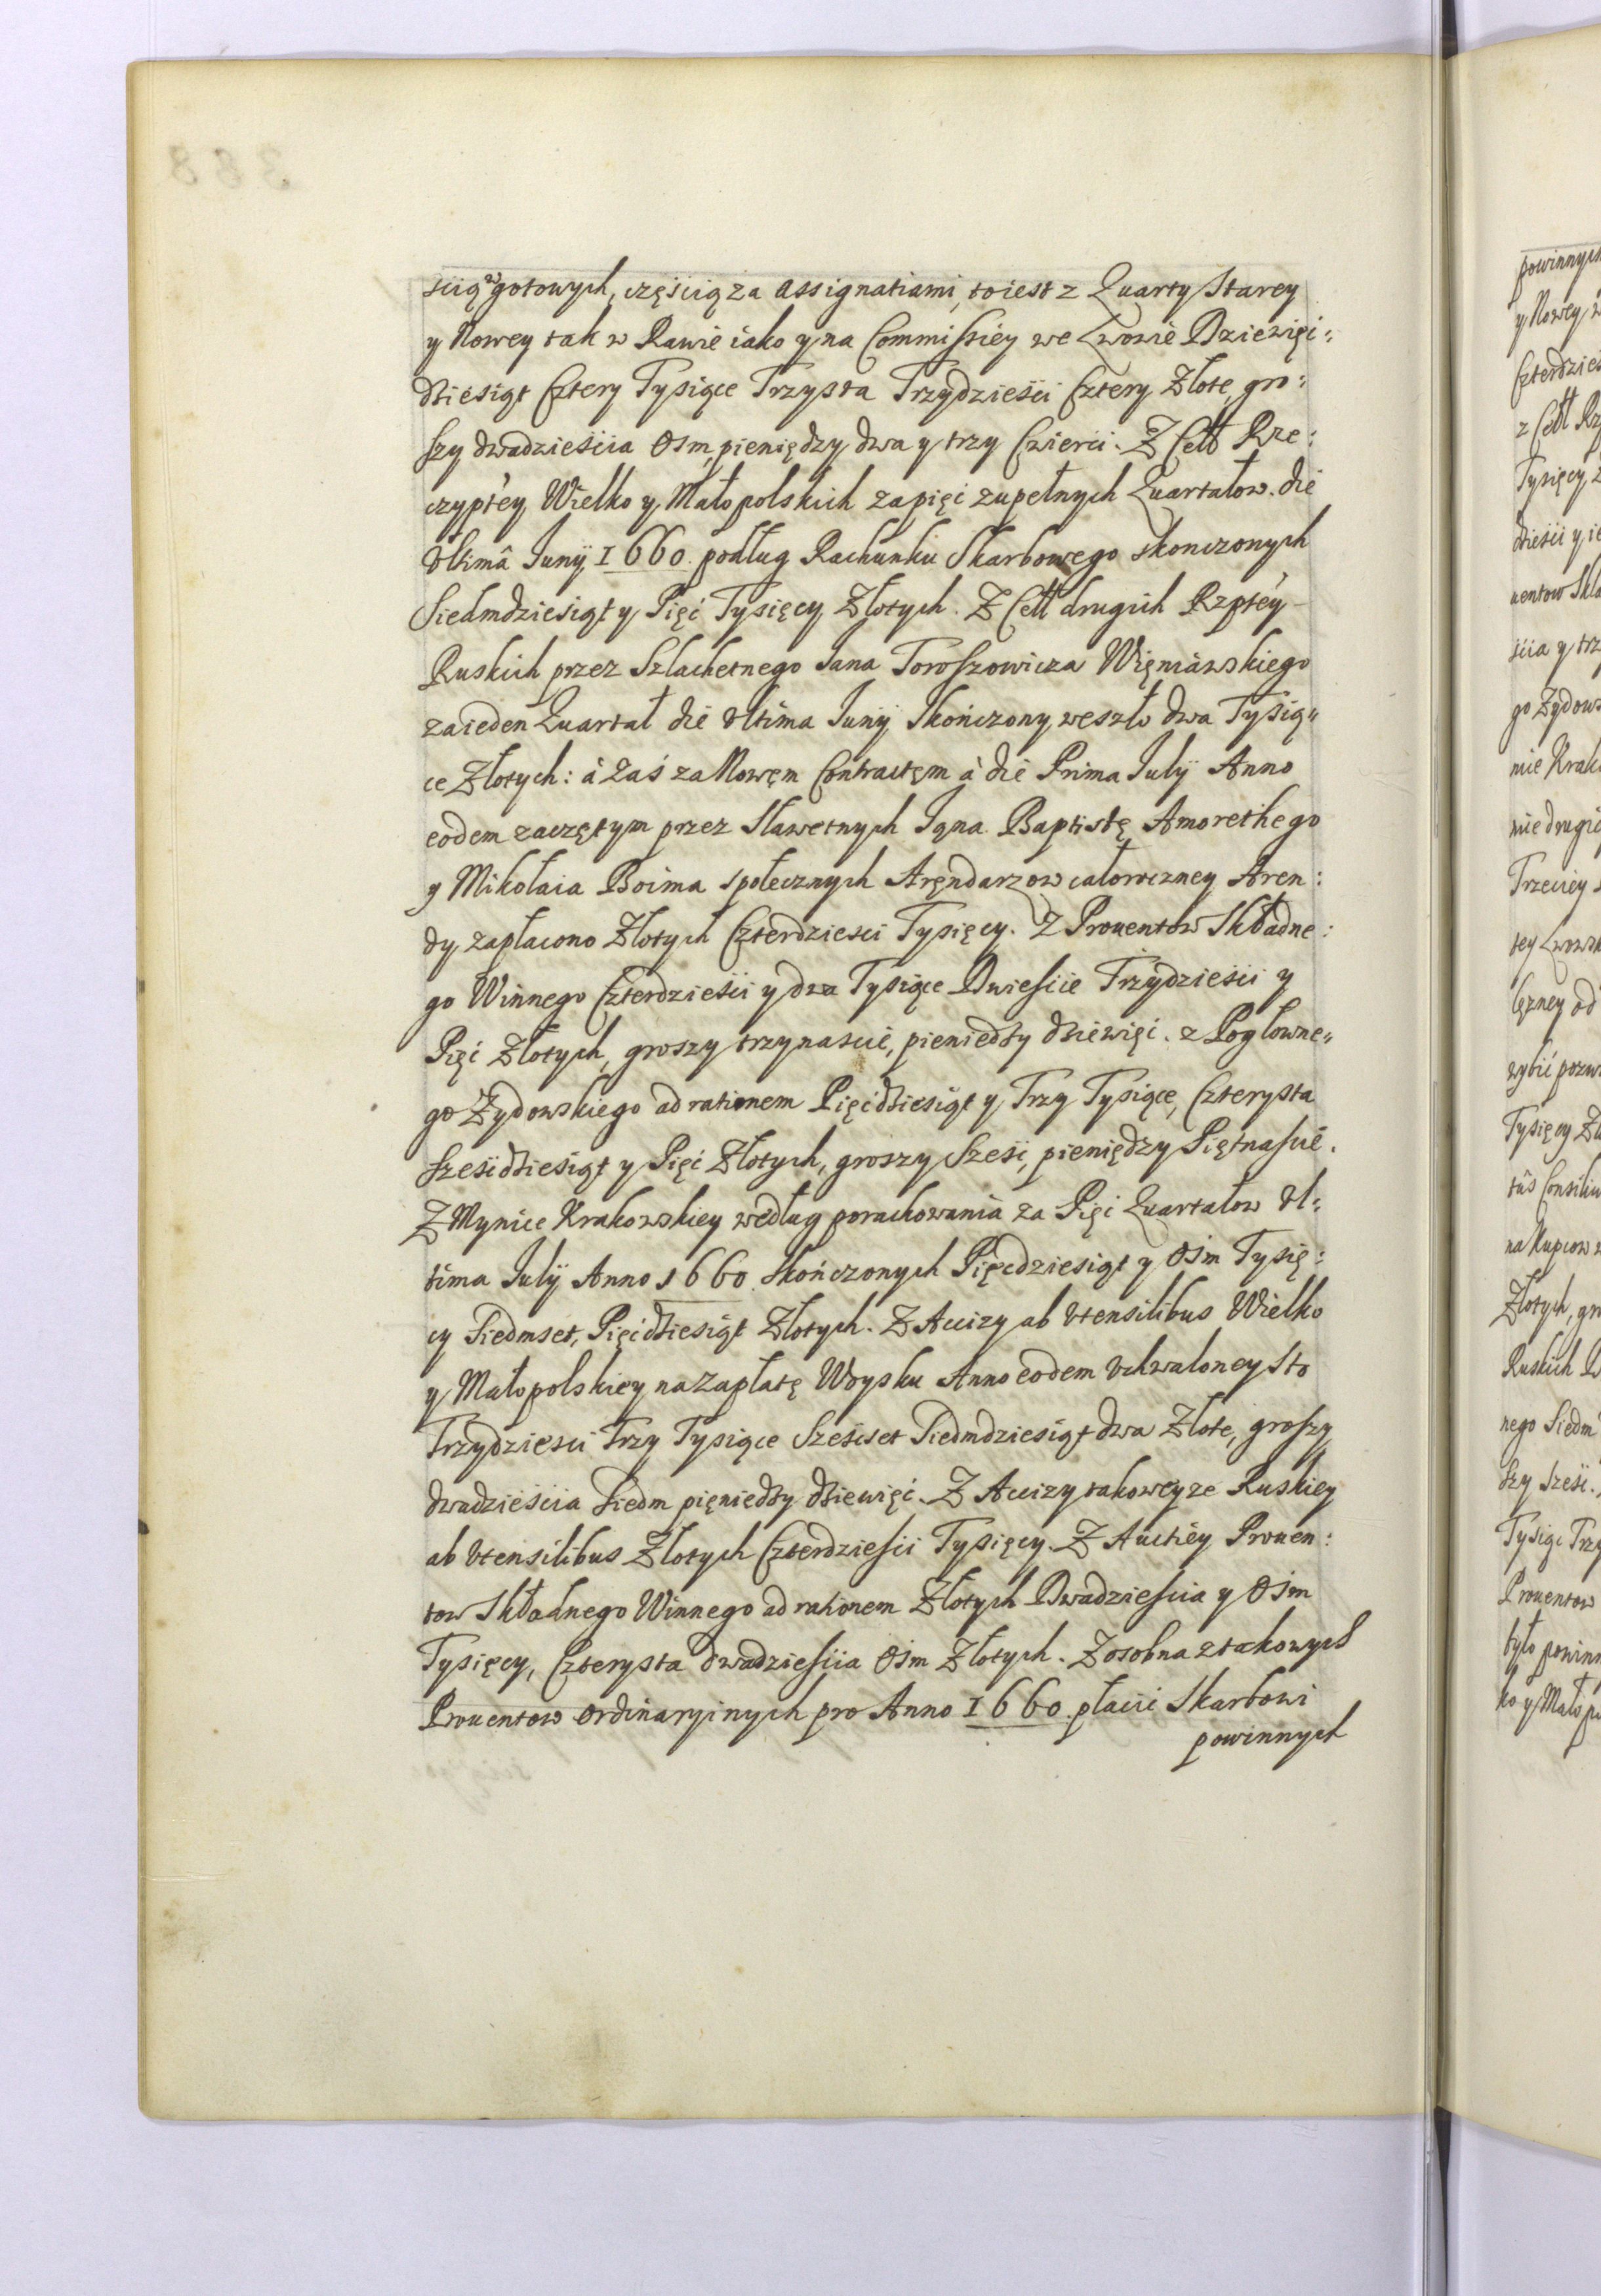 scią w gotowych, częścią za assignatiami, toiest z Quarty Starey
y Nowey tak w Rawie iako y na Commissiey we Lwowie Dziewięć:
dziesiąt Cztery Tysiące Trzysta Trzydzieści Cztery Złote, gro:
szy dwadzieścia Osm, pieniędzy dwa y trzy Czwierci. Z Cełł Rze:
czyptey Wielko y Małopolskich za pięć zupełnych Quartałow. die
Vltimâ Junÿ 1660. podług Rachunku Skarbowego skonczonych
Siedmdziesiąt y Pięć Tysięcy Złotych. Z Cełł drugich Rzptey
Ruskich przez Szlachetnego Jana Toroszowicza Więniawskiego
za ieden Quartał die Vltima Junÿ Skończony weszło dwa Tysią:
ce Złotych: à Zaś za Nowęm Contractęm à die Prima Julÿ Anno
eodem zaczętym przez Sławetnych Jąna Baptistę Amorethego
y Mikołaia Boima społecznych Aręndarzow całoroczney Aren:
dy zapłacono Złotych Czterdziesci Tysięcy. Z Prouentow Składne:
go Winnego Czterdzieści y dwa Tysiące Dwieście Trzydzieści y
Pięć Złotych, groszy trzynascie, pieniedzy dziewięć. z Pogłowne:
go Zydowskiego ad rationem Pięćdziesiąt y Trzy Tysiące, Czterysta
Sześćdziesiąt y Pięć Złotych, groszy Sześć, pieniędzy Piętnaście.
Z Mynice Krakowskiey według porachowania za Pięć Quartałow Vl:
tima Julÿ Anno 1660. Skończonych Pięcdziesiąt y Ośm Tysię:
cy Siedmset, Pięćdziesiąt Złotych. Z Accizy ab Vtensilibus Wielko
y Małopolskiey na zapłatę Woysku Anno eodem Vchwaloney Sto
Trzydziesci Trzy Tysiące Sześcset Siedmdziesiąt dwa Złote, groszy
dwadzieścia Siedm pięniedzy dziewięć. Z Accizy takoweyze Ruskiey
ab Vtensilibus Złotych Czterdzieści Tysięcy. Z Auctiey Prouen:
tow Składnego Winnego ad rationem Złotych Dwadzieścia y Ośm
Tysięcy, Czterysta dwadzieścia Ośm Złotych. Z osobna z takowych
Prouentow Ordinaryinych pro Anno 1660. płacić Skarbowi
powinnych